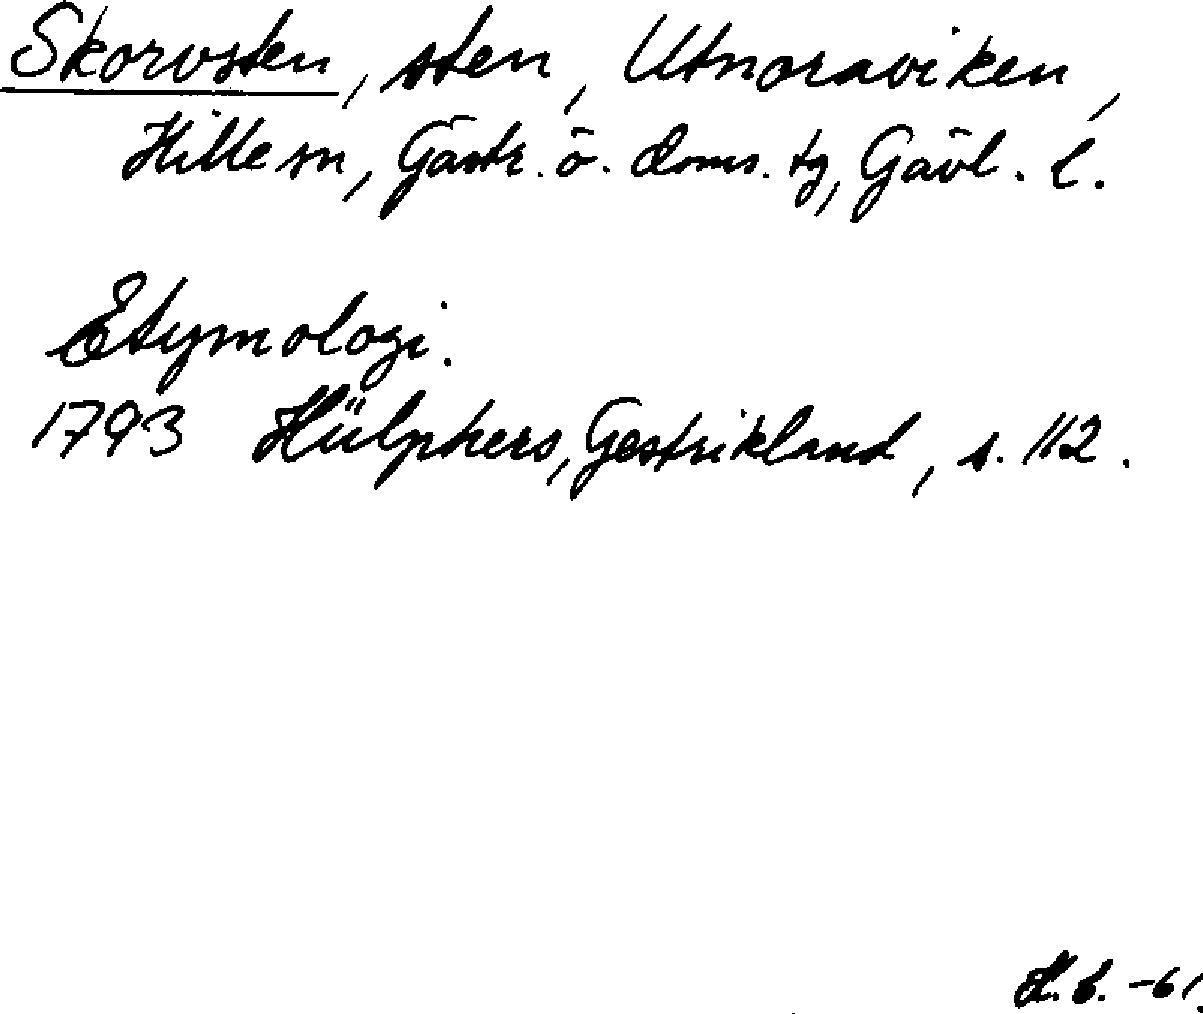 Skorvsten, sten, Utnoraviken,
Hille sn, Gästr. ö. doms. tg, Gävl. l.
Etymologi.
1793 Hülphers, Gestrikland, s. 112.
H. B. -61